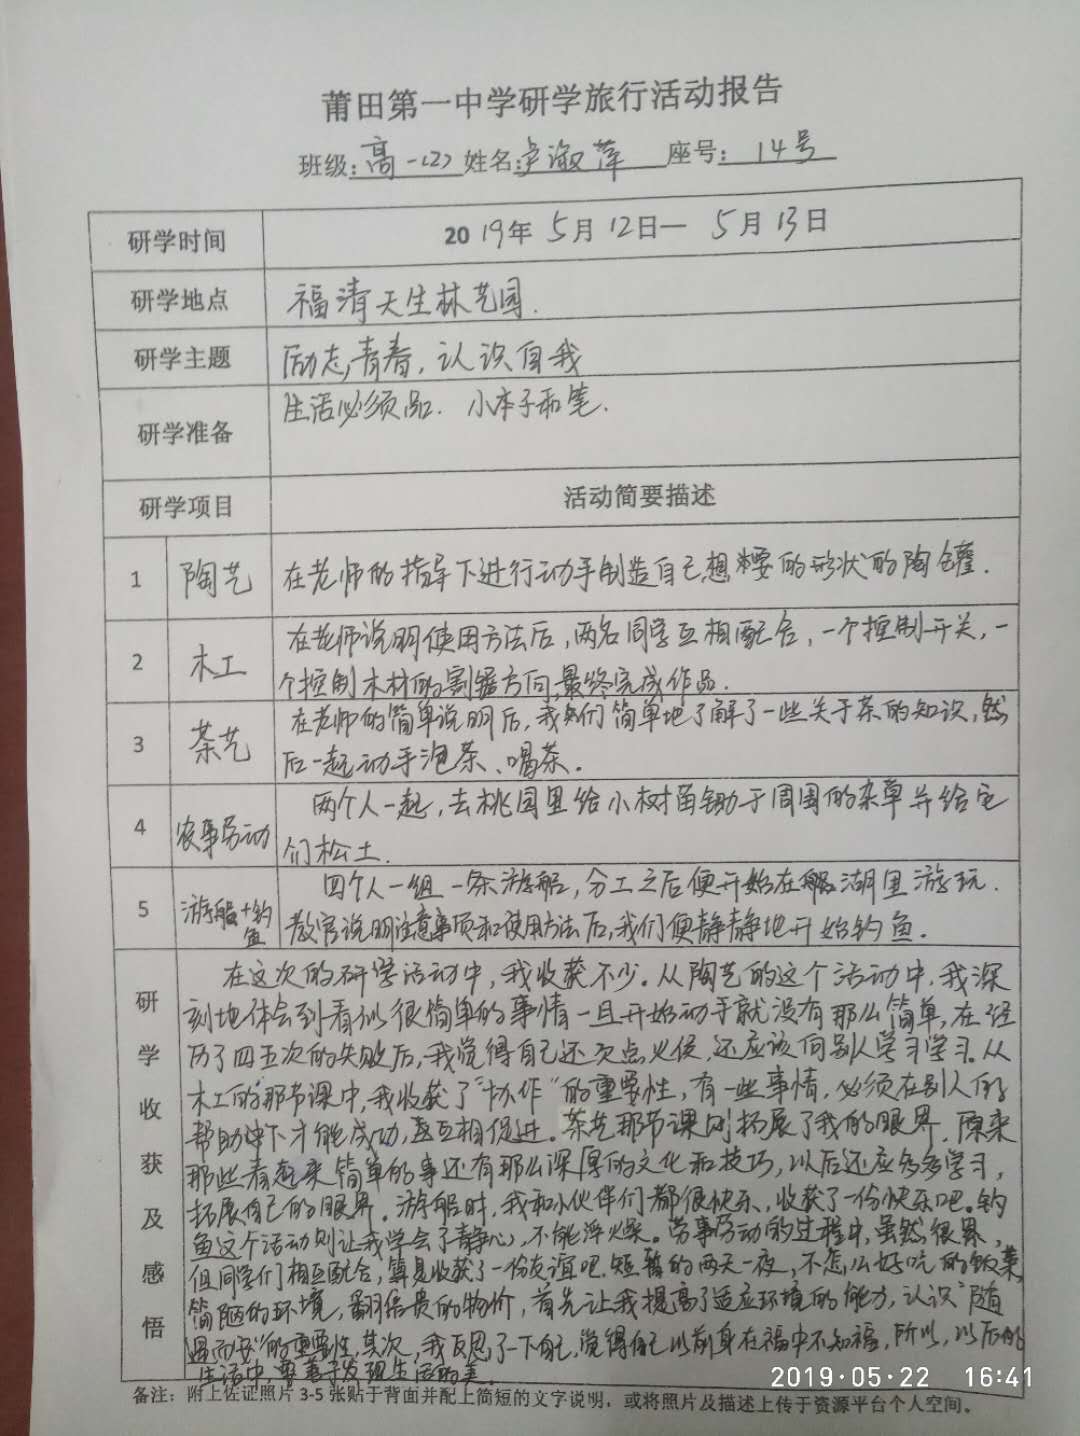 莆田第一中学研学旅行活动报告
班级:高一(2) 姓名:卢淑萍 座号: 14号
研学时间 2019年5月12日—5月13日
研学地点 福清天生林艺园.
研学主题 励志,青春,认识自我
研学准备 生活必须品. 小本子和笔.
研学项目 活动简要描述
1 陶艺 在老师的指导下进行动手制造自己想要的形状的陶罐.
2 木工 在老师说明使用方法后,两名同学互相配合,一个控制开关,一
个控制木材的割锯方向,最终完成作品.
3 茶艺 在老师的简单说明后,我们简单地了解了一些关于茶的知识,然
后一起动手泡茶、喝茶.
4 农事劳动 两个人一起,去桃园里给小树苗锄于周围的杂草并给它
们松土.
5 游船+钓鱼 四个人一组一条游船,分工之后便开始在湖里游玩.
教官说明注意事项和使用方法后,我们便静静地开始钓鱼.
研学收获及感悟
在这次的研学活动中,我收获不少.从陶艺的这个活动中,我深
刻地体会到看似很简单的事情一旦开始动手就没有那么简单,在经
历了四五次的失败后,我觉得自己还欠点火侯,还应该向别人学习学习.从
木工的那节课中,我收获了“协作”的重要性,有一些事情,必须在别人的
帮助下才能成功,互相促进.茶艺那节课则拓展了我的眼界,原来
那些看起来简单的事还有那么深厚的文化和技巧,以后还应多多学习,
拓展自己的眼界.游船时,我和小伙伴们都很快乐,收获了一份快乐吧.钓
鱼这个活动则让我学会了静心,不能浮躁.劳动的过程中,虽然很累,
但同学们相互配合,算是收获了一份友谊吧.短暂的两天一夜,不怎么好吃的饭菜,
简陋的环境,翻倍贵的物价,首先让我提高了适应环境的能力,认识“随
遇而安”的重要性,其次,我反思了一下自己,觉得自己以前身在福中不知福,所以,以后的
生活中,要善于发现生活的美.
备注: 附上佐证照片 3-5 张贴于背面并配上简短的文字说明,或将照片及描述上传于资源平台个人空间。
2019·05·22 16:41